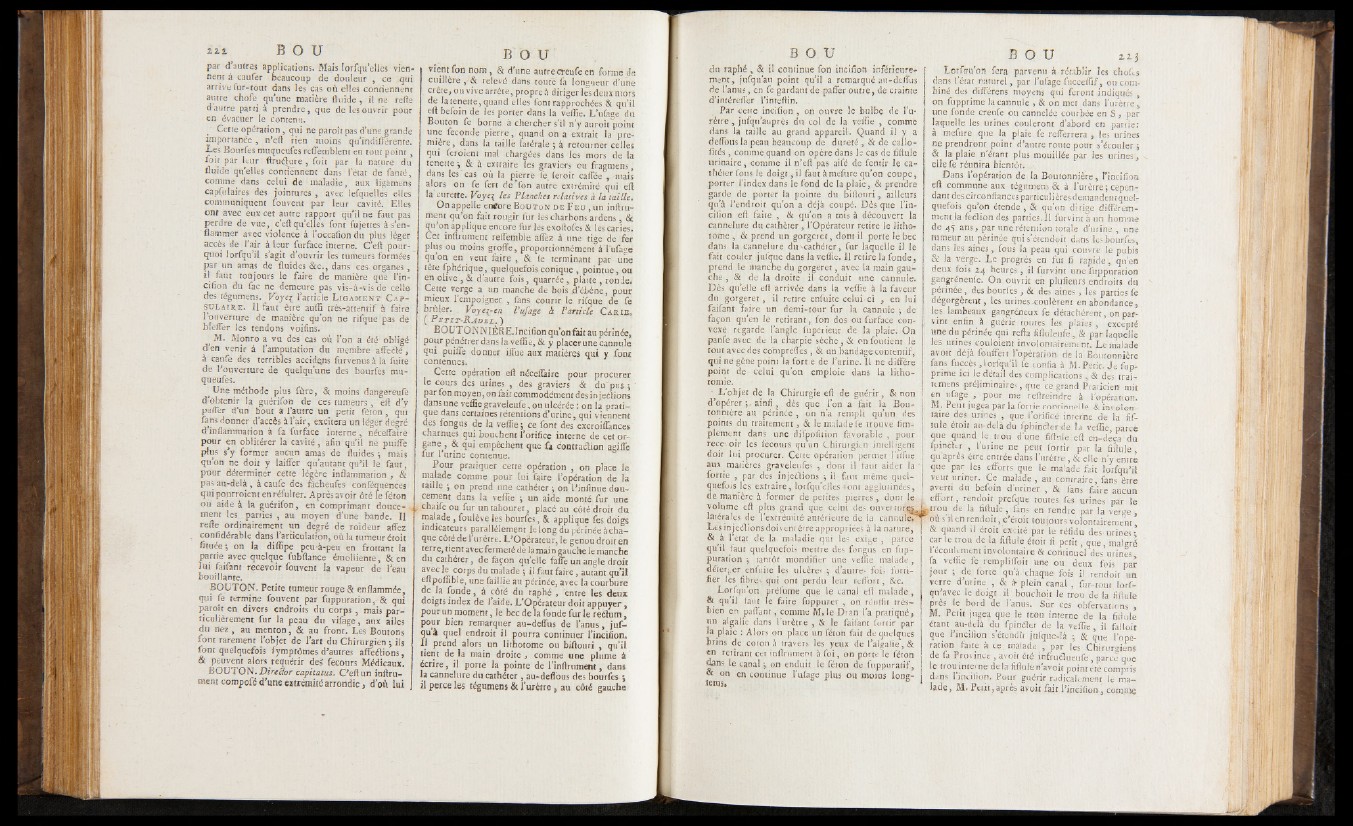 222 BOU
par d'autres applications. Mais lorſqu'elles vien-
nent à cauſer beaucoup de douleur , ce qui
arrive ſur-tout dans les cas où elles contiennent
autre choſe qu'une matière fluide, il ne reſte
d'autre parti à prendre, que de les ouvrir pour
en évacuer le contenu.
Cette opération, qui ne paroît pas d'une grande
importance , n'eſt rien moins qu'indifférente.
Les Bourſes muqueuſes reſſemblent en tout point ,
ſoit par leur ſtructure, ſoit par la nature du
fluide qu'elles contiennent dans l'état de ſanté,
comme dans celui de maladie, aux ligamens
capſulaires des jointures , avec leſquelles elles
communiquent ſouvent par leur cavité. Elles
ont avec eux cet autre rapport qu'il ne faut pas
perdre de vue, c'eſt qu'elles ſont ſujettes à s'en-
flammer avec violence à l'occaſion du plus léger
accès de l'air à leur ſurface interne. C'eſt pour-
quoi lorſqu'il s'agit d'ouvrir les tumeurs formées
par un amas de fluides &c., dans ces organes ,
il faut toujours le faire de manière que l'in-
ciſion du ſac ne demeure pas vis-à-vis de celle
des tégumens. Voyez l'article LIGAMENT CAP-
SULAIRE. Il faut être auſſi très-attentif à faire
l'ouverture de manière qu'on ne riſque pas de
bleſſer les tendons voiſins.
M. Monro a vu des cas où l'on a été obligé
d'en venir à l'amputation du membre affecté,
à cauſe des terribles accidens ſurvenus à la ſuite
de l'ouverture de quelqu'une des bourſes mu-
queuſes.
Une méthode plus ſûre, & moins dangereuſe
d'obtenir la guériſon de ces tumeurs , eſt d'y
paſſer d'un bout à l'autre un petit ſéton, qui
ſans donner d'accès à l'air, excitera un léger degré
d'inflammation à ſa ſurface interne, néceſſaire
pour en oblitérer la cavité, afin qu'il ne puiſſe
plus s'y former aucun amas de fluides ; mais
qu'on ne doit y laiſſer qu'autant qu'il le faut,
pour déterminer cette légère inflammation , &
pas au-delà , à cauſe des fâcheuſes conſéquences
qui pourroient en réſulter. Après avoir ôté le ſéton
on aide à la guériſon, en comprimant douce-
ment les parties , au moyen d'une bande. Il
reſte ordinairement un degré de roideur aſſez
conſidérable dans l'articulation, où la tumeur étoit
ſituée ; on la diſſipe peu-à-peu en frottant la
partie avec quelque ſubſtance émolliente, & en
lui faiſant recevoir ſouvent la vapeur de l'eau
bouillante.
BOUTON. Petite tumeur rouge & enflammée,
qui ſe termine ſouvent par ſuppuration, & qui
paroît en divers endroits du corps , mais par-
ticulièrement ſur la peau du viſage, aux ailes
du nez , au menton, & au front. Les Boutons
ſont rarement l'objet de l'art du Chirurgien ; ils
ſont quelquefois ſymptômes d'autres affections,
& peuvent alors requérir des ſecours Médicaux.
BOUTON. Director capitatus. C'eſt un inſtru-
ment compoſé d'une extrémité arrondie , d'où lui
BOU
vient ſon nom, & d'une autre creuſe en forme de
cuillère , & relevé dans toute ſa longueur d'une
crête, ou vive arrête, propre à diriger les deux mors
de la tenette, quand elles ſont rapprochées & qu'il
eſt beſoin de les porter dans la veſſie. L'uſage du
Bouton ſe borne à chercher s'il n'y auroit point
une ſeconde pierre, quand on a extrait la pre-
mière, dans la taille latérale ; à retourner celles
qui ſeroient mal chargées dans les mors de la
tenette ; & à extraire les graviers ou fragmens,
dans les cas où la pierre ſe ſeroit caſſée , mais
alors on ſe ſert de ſon autre extrémité qui eſt
la curette. Voyez les Planches relatives à la taille.
On appelle encore BOUTON DE FEU, un inſtru-
ment qu'on fait rougir ſur les charbons ardens , &
qu'on applique encore ſur les exoſtoſes & les caries.
Cet inſtrument reſſemble aſſez à une tige de fer
plus ou moins groſſe, proportionnément à l'uſage
qu'on en veut faire , & ſe terminant par une
tête ſphérique, quelquefois conique , pointue, ou
en olive, & d'autre fois, quarrée, platte, ronde.
Cette verge a un manche de bois d'ébène, pour
mieux l'empoigner , ſans courir le riſque de ſe
brûler. Voyez-en l'uſage à l'article CARIE.
( PETIT-RADEL. )
BOUTONNIÈRE. Inciſion qu'on fait au périnée,
pour pénétrer dans la veſſie, & y placer une cannule
qui puiſſe donner iſſue aux matières qui y ſont
contenues.
Cette opération eſt néceſſaire pour procurer
le cours des urines , des graviers & du pus ;
par ſon moyen, on fait commodément des injections
dans une veſſie graveleuſe, ou ulcérée : on la prati-
que dans certaines rétentions d'urine, qui viennent
des fongus de la veſſie ; ce ſont des excroiſſances
charnues qui bouchent l'orifice interne de cet or-
gane, & qui empêchent que ſa contraction agiſſe
ſur l'urine contenue.
Pour pratiquer cette opération , on place le
malade comme pour lui faire l'opération de la
taille ; on prend une cathéter ; on l'inſinue dou-
cement dans la veſſie ; un aide monté ſur une
chaiſe ou ſur un tabouret, placé au côté droit du
malade, ſoulève les bourſes, & applique ſes doigts
indicateurs parallèlement le long du périnée à cha-
que côté de l'urètre. L'Opérateur, le genou droit en
terre, tient avec fermeté de la main gauche le manche
du cathéter, de façon qu'elle faſſe un angle droit
avec le corps du malade ; il faut faire, autant qu'il
eſt poſſible, une ſaillie au périnée, avec la courbure
de la ſonde, à côté du raphé , entre les deux
doigts index de l'aide. L'Opérateur doit appuyer ,
pour un moment, le bec de la ſonde ſur le rectum,
pour bien remarquer au-deſſus de l'anus, juſ-
qu'à quel endroit il pourra continuer l'inciſion.
Il prend alors un lithotome ou biſtouri , qu'il
tient de la main droite , comme une plume à
écrire, il porte la pointe de l'inſtrument, dans
la cannelure du cathéter, au-deſſous des bourſes ;
il perce les tégumens & l'urètre , au côté gauche
BOU
du raphé, & il continue ſon inciſion inférieure-
ment, juſqu'au point qu'il a remarqué au-deſſus
de l'anus, en ſe gardant de paſſer outre, de crainte
d'intéreſſer l'inteſtin.
Par cette inciſion , on ouvre le bulbe de l'u-
rètre , juſqu'auprès du col de la veſſie , comme
dans la taille au grand appareil. Quand il y a
deſſous la peau beaucoup de dureté, & de calio-
ſités , comme quand on opère dans le cas de fiſtule
urinaire, comme il n'eſt pas aiſé de ſentir le ca-
théter ſous le doigt, il faut à meſure qu'on coupe,
porter l'index dans le fond de la plaie, & prendre
garde de porter la pointe du biſtouri, ailleurs
qu'à l'endroit qu'on a déjà coupé. Dès que l'in-
ciſion eſt faite , & qu'on a mis à découvert la
cannelure du cathéter, l'Opérateur retire le litho-
tome, & prend un gorgeret, dont il porte le bec
dans la cannelure du cathéter, ſur laquelle il le
fait couler juſque dans la veſſie. Il retire la ſonde,
prend le manche du gorgeret, avec la main gau-
che, & de la droite il conduit une cannule.
Dès qu'elle eſt arrivée dans la veſſie à la faveur
du gorgeret, il retire enſuite celui ci , en lui
faiſant faire un demi-tour ſur la cannule , de
façon qu'en le retirant, ſon dos ou ſurface con-
vexe regarde l'angle ſupérieur de la plaie. On
panſe avec de la charpie sèche, & on ſoutient le
tout avec des compreſſes, & un bandage contentif,
qui ne gêne point la ſortie de l'urine. Il ne diffère
point de celui qu'on emploie dans la litho-
tomie.
L'objet de la Chirurgie eſt de guérir, & non
d'opérer ; ainſi, dès que l'on a fait la Bou-
tonnière au périnée , on n'a rempli qu'un des
points du traitement , & le malade ſe trouve ſim-
plement dans une diſpoſition favorable , pour
recevoir les ſecours qu'un Chirurgien intelligent
doit lui procurer. Cette opération permet l'iſſue
aux matières graveleuſes , dont il faut aider la
ſortie , par des injections ; il faut même quel-
quefois les extraire, lorſqu'elles ſont agglutinées,
de manière à former de petites pierres, dont le
volume eſt plus grand que celui des ouvertures
latérales de l'extrémité antérieure de la cannule.
Les injections doivent être appropriées à la nature,
& à l'état de la maladie qui les exige, parce
qu'il faut quelquefois mettre des fongus en ſup-
puration ; tantôt mondifier une veſſie malade,
déterger enſuite les ulcères ; d'autres fois forti-
fier les fibres qui ont perdu leur reſſort, &c.
Lorſqu'on préſume que le canal eſt malade,
& qu'il faut le faire ſuppurer , on réuſſit très-
bien en paſſant, comme M. le Dran l'a pratiqué,
un algalie dans l'urètre , & le faiſant ſortir par
la plaie : Alors on place un ſéton fait de quelques
brins de coton à travers les yeux de l'algalie, &
en retirant cet inſtrument à ſoi, on porte le ſéton
dans le canal ; on enduit le ſéton de ſuppuratif,
& on en continue l'uſage plus ou moins long-
tems.
BOU 223
Lorſqu'on ſera parvenu à rétablir les choſes
dans l'état naturel, par l'uſage ſucceſſif, ou com-
biné des différens moyens qui ſeront indiqués ,
on ſupprime la cannule , & on met dans l'urètre,
une ſonde creuſe ou cannelée courbée en S , par
laquelle les urines couleront d'abord en partie :
à meſure que la plaie ſe reſſerrera , les urines
ne prendront point d'autre route pour s'écouler ;
& la plaie n'étant plus mouillée par les urines,
elle ſe réunira bientôt.
Dans l'opération de la Boutonnière, l'inciſion
eſt commune aux tégumens & à l'urètre ; cepen-
dant des circonſtances particulières demandent quel-
quefois qu'on étende, & qu'on dirige différem-
ment la ſection des parties. Il ſurvint à un homme
de 45 ans, par une rétention totale d'urine , une
tumeur au périnée qui s'étendoit dans les bourſes,
dans les aines , ſous la peau qui couvre le pubis
& la verge. Le progrès en fut ſi rapide, qu'en
deux fois 24 heures , il ſurvint une ſuppuration
gangréneuſe. On ouvrit en pluſieurs endroits du
périnée, des bourſes , & des aines , les parties ſe
dégorgèrent, les urines coulèrent en abondance,
les lambeaux gangréneux ſe détachèrent, on par-
vint enfin à guérir toutes les plaies , excepté
une du périnée qui reſta fiſtuleuſe, & par laquelle
les urines couloient involontairement. Le malade
avoit déjà ſouffert l'opération de la Boutonnière
ſans ſuccès, lorſqu'il ſe confia à M. Petit. Je ſup-
prime ici le détail des complications, & des trai-
temens préliminaires, que ce grand Praticien mit
en uſage , pour me reſtreindre à l'opération.
M. Petit jugea par la ſortie continuelle & involon-
taire des urines , que l'orifice interne de la fiſ-
tule étoit au-delà du ſphincter de la veſſie, parce
que quand le trou d'une fiſtule eſt en-deçà du
ſphincter , l'urine ne peut ſortir par la fiſtule,
qu'après être entrée dans l'urètre, & elle n'y entre
que par les efforts que le malade fait lorſqu'il
veut uriner. Ce malade, au contraire, ſans être
averti du beſoin d'uriner , & ſans faire aucun
effort, rendoit preſque toutes ſes urines par le
trou de la fiſtule, ſans en rendre par la verge ,
où s'il en rendoit, c'étoit toujours volontairement,
& quand il étoit excité par le réſidu des urines ;
car le trou de la fiſtule étoit ſi petit, que, malgré
l'écoulement involontaire & continuel des urines,
ſa veſſie ſe rempliſſoit une ou deux fois par
jour ; de ſorte qu'à chaque fois il rendoit un
verre d'urine , & à plein canal , ſur-tout lorſ-
qu'avec le doigt il bouchoit le trou de la fiſtule
près le bord de l'anus. Sur ces obſervations ,
M. Petit jugea que le trou interne de la fiſtule
étant au-delà du ſphincter de la veſſie, il falloit
que l'inciſion s'étendît juſque-là ; & que l'opé-
ration faite à ce malade , par les Chirurgiens
de ſa Province , avoit été infructueuſe, parce que
le trou interne de la fiſtule n'avoit point été compris
dans l'inciſion. Pour guérir radicalement le ma-
lade, M. Petit, après avoir fait l'inciſion, comme